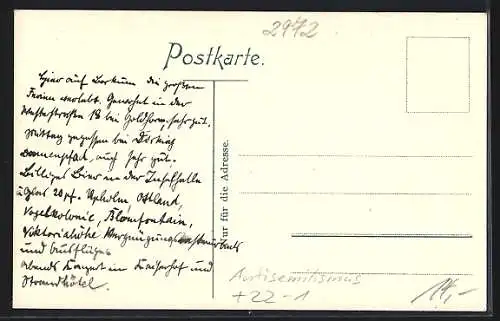 2972
Postkarte.
Hier auf Borkum die großen
Ferien verlebt. Gewohnt in der
18 bei sehr gut.
Mittag gegessen bei
auch sehr gut.
Billiges Bier in der Inselhalle
à Glas 20 pf. Upholm, Ostland,
Vogelkolonie, Bloemfontain,
Viktoriahöhe
und Ausflüge
abends Konzert im Kaiserhof und
Strandhôtel.
Nur für die Adresse.
Antisemitismus
+22-1
14,-